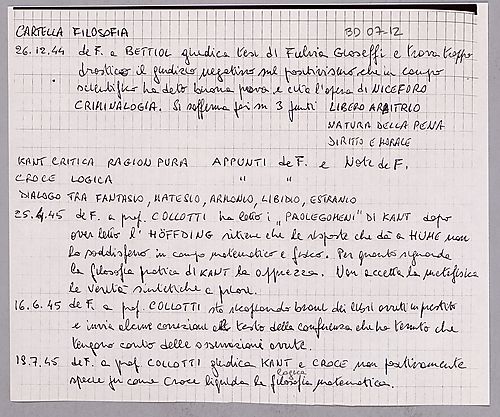 CARTELLA FILOSOFIA 3D 07-12
26.12.44 de F. a BETTIOL giudica tesi di Fulvia Gioseffi e trova troppo
drastico il giudizio negativo sul positivismo che in campo
scientifico ha dato buona prova e cita l'opera di NICEFORO
CRIMINALOGIA. Si sofferma poi su 3 punti LIBERO ARBITRIO
NATURA DELLA PENA
DIRITTO E MORALE
KANT CRITICA RAGION PURA APPUNTI de F. e Note de F.
CROCE LOGICA " "
DIALOGO TRA FANTASIO, MATESIO, ARMONIO, LIBIDIO, ESTRANIO
25.4.45 de F. a prof. COLLOTTI ha letto i "PAOLEGOMENI" DI KANT dopo
aver letto l'HÖFFDING ritiene che le risposte che dà a HUME non
lo soddisfano in campo matematico e fisico. Per quanto riguarda
la filosofia pratica di KANT la apprezza. Non accetta la metafisica
le verità sintetiche a priori.
16.6.45 de F. a prof. COLLOTTI sta ricopiando brani dei libri avuti in prestito
e invia alcune correzioni al testo della conferenza che ha tenuto che
tengono conto delle osservazioni avute.
19.7.45 de F. a prof COLLOTTI giudica KANT e CROCE non positivamente
specie per come Croce liquida la filosofia logica matematica.